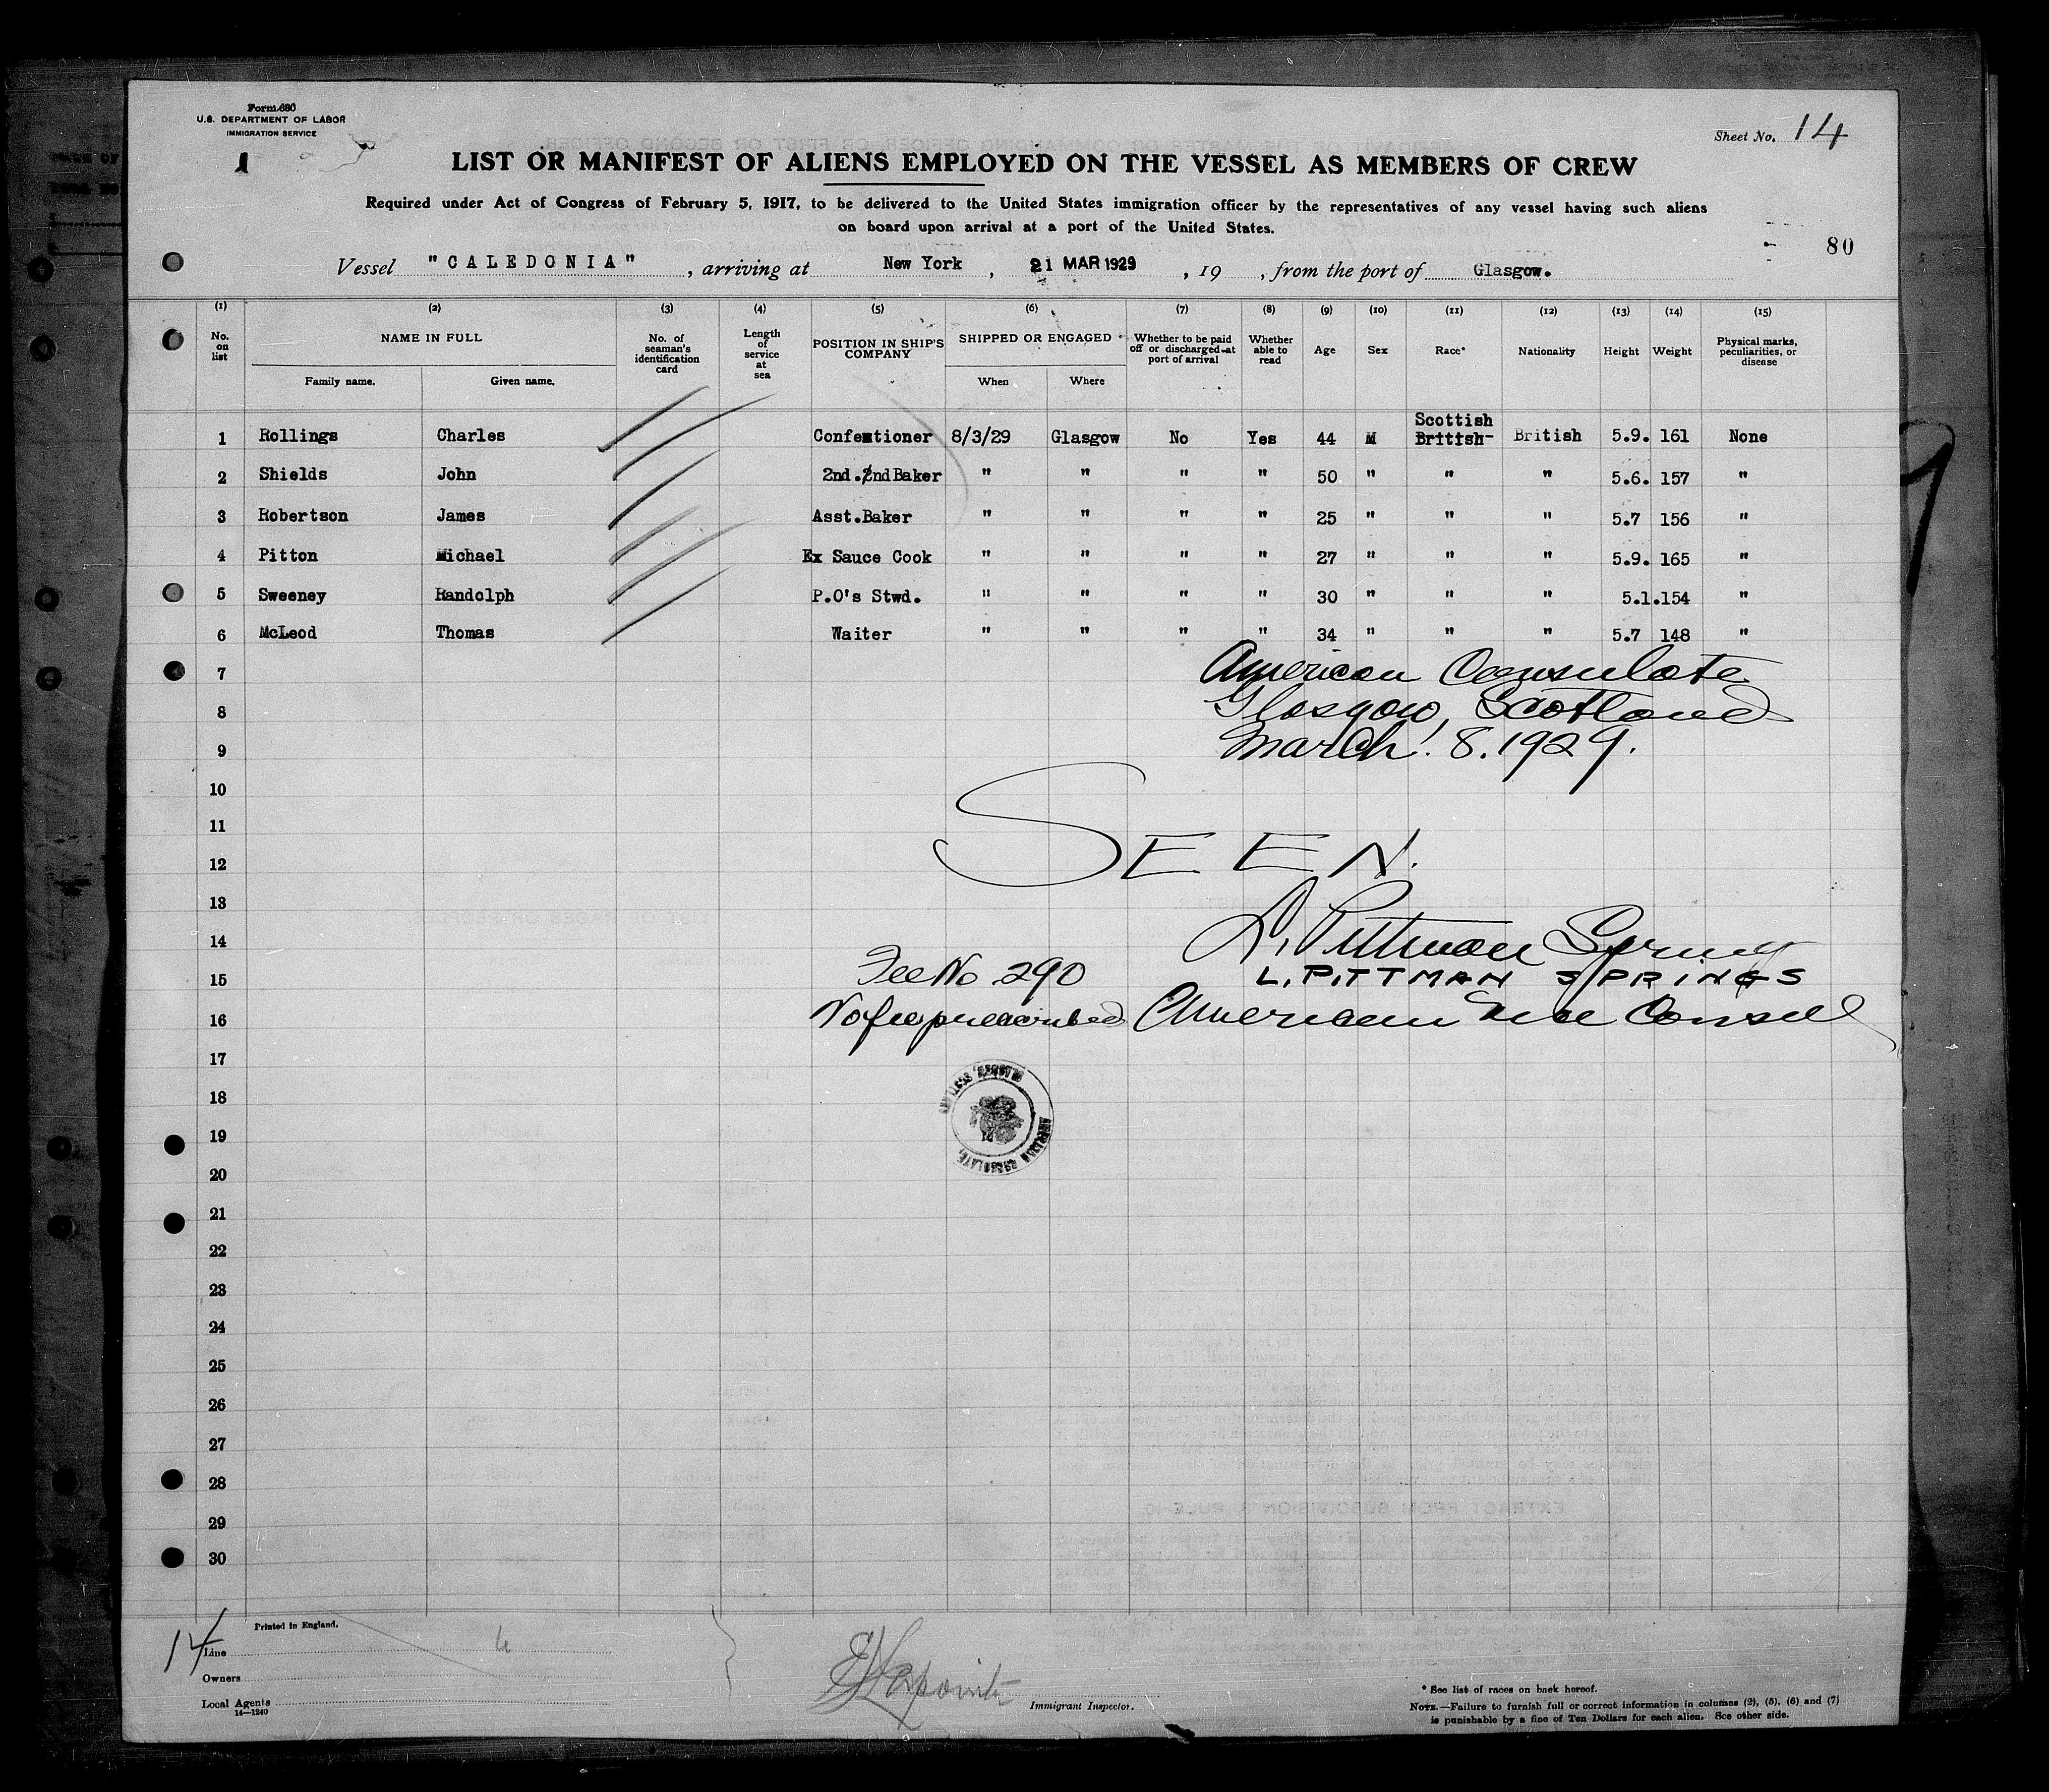 Form 680
U.S. DEPARTMENT OF LABOR
IMMIGRATION SERVICE
1
Sheet No. 14
LIST OR MANIFEST OF ALIENS EMPLOYED ON THE VESSEL AS MEMBERS OF CREW
Required under Act of Congress of February 5, 1917, to be delivered to the United States immigration officer by the representatives of any vessel having such aliens
on board upon arrival at a port of the United States.
80
Vessel "CALEDONIA", arriving at New York, 21 MAR 1929, 19 , from the port of Glasgow.
(1) (2) (3) (4) (5) (6) (7) (8) (9) (10) (11) (12) (13) (14) (15)
No. on list NAME IN FULL No. of seaman's identification card Length of service at sea POSITION IN SHIP'S COMPANY SHIPPED OR ENGAGED Whether to be paid off or discharged at port of arrival Whether able to read Age Sex Race* Nationality Height Weight Physical marks, peculiarities, or disease
Family name. Given name. When Where
Scottish
1 Rollings Charles Confemtioner 8/3/29 Glasgow No Yes 44 M British British 5.9. 161 None
2 Shields John 2nd.2ndBaker " " " " 50 " " " 5.6. 157 "
3 Robertson James Asst.Baker " " " " 25 " " " 5.7 156 "
4 Pitton Michael Ex Sauce Cook " " " " 27 " " " 5.9. 165 "
5 Sweeney Randolph P.O's Stwd. " " " " 30 " " " 5.1. 154 "
6 McLeod Thomas Waiter " " " " 34 " " " 5.7 148 "
7 American Consulate
8 Glasgow, Scotland
9 March 8. 1929.
10
11
12 SEEN.
13
14 L. Pittman Springs
15 Fee No 290 L. PITTMAN SPRINGS
16 No fee prescribed American Vice Consul
17
18
AMERICAN CONSULATE, GLASGOW, SCOTLAND
19
20
21
22
23
24
25
26
27
28
29
30
Printed in England.
14
Line
Owners
Local Agents
14—1240
Immigrant Inspector.
* See list of races on back hereof.
NOTE.—Failure to furnish full or correct information in columns (2), (5), (6) and (7)
is punishable by a fine of Ten Dollars for each alien. See other side.